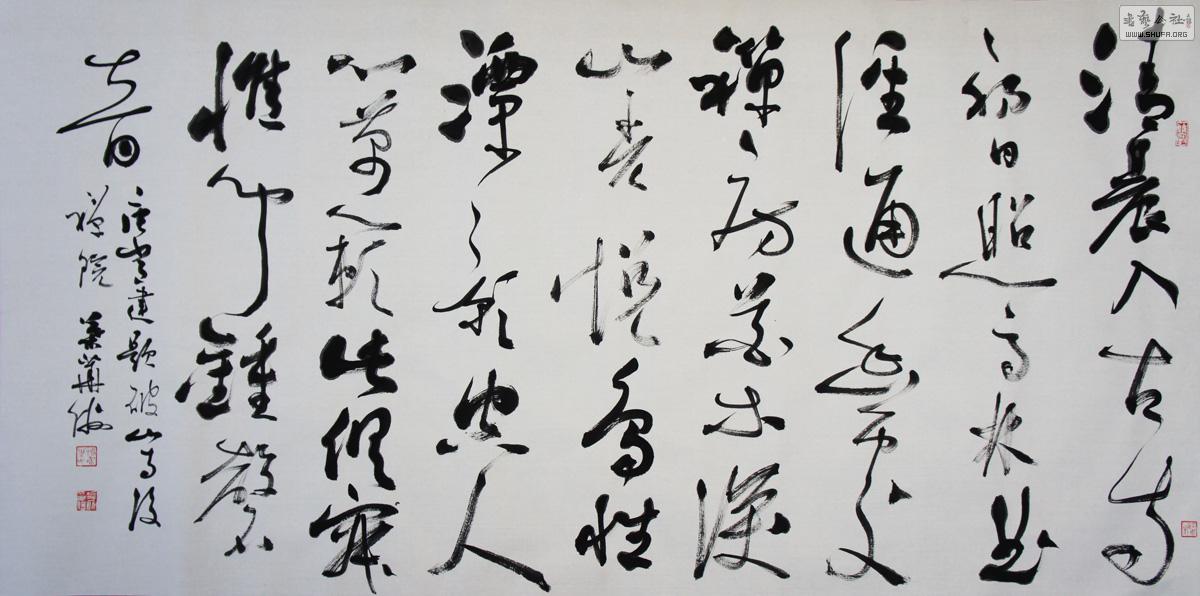 清晨入古寺
初日照高林曲
徑通幽處
禪房花木深
山光悦鳥性
潭影空人
心萬籟此俱寂
惟聞鍾磬
音
唐常建題破山寺後
禪院 葉華
書藝公社
WWW.SHUFA.ORG